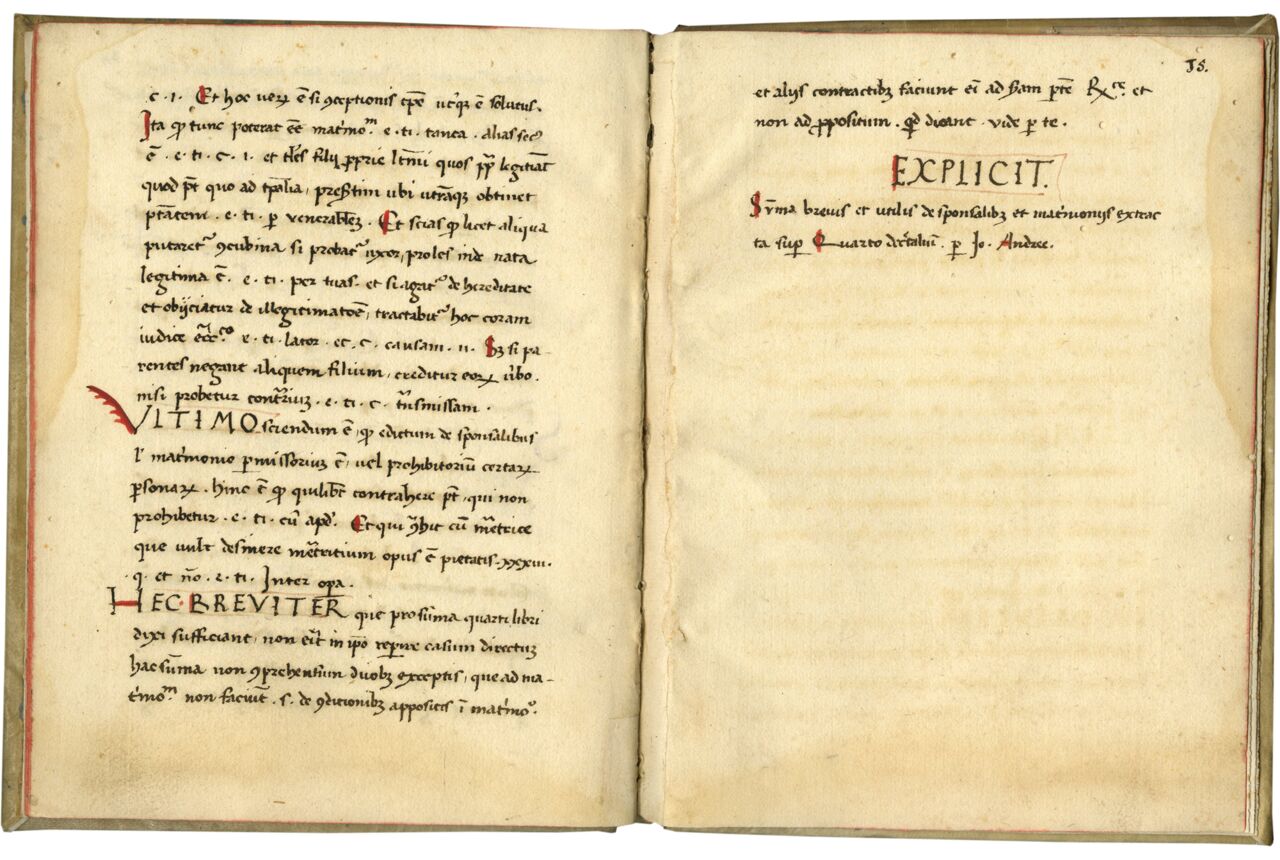 c · 1 · Et hoc veꝝ ē si ꝯceptionis tꝑe utꝰqꝫ ē solutus ·
Ita ꝙ tunc poterat eē mat'mo.ᵐ e · ti · tanta · alias secꝰ
ē · e · ti · c · 1 · et
quod pt̄ quo ad tꝑalia, pres̄tim ubi utrāqꝫ obtinet
ptātem · e · ti · ꝑ venerabilē · Et scias ꝙ licet aliqua
putaret᷑ ꝯcubina si probat᷑ uxor, proles inde nata
legitima ē · e · ti · per tuas · et si agat᷑ de hereditate
et obijciatur de illegitimatōe, tractabit᷑ hoc coram
iudice · e · ti · lator · et · c · causam · ii · Sꝫ si pa-
rentes negant aliquem filium, creditur eoꝝ ūbo ·
nisi probetur · e · ti · c · t̄nsmissam ·
VLTIMO sciendum ē, ꝙ edictum de sponsalibus
l' mat'monio ꝑmissoriuꝫ ē, vel prohibitoriū certaꝝ
ꝑsonaꝝ · hinc ē ꝙ quilibꝫ contrahere pt̄, qui non
prohibetur · e · ti · cū apd' · Et qui ꝯhit cū m̄etrice
que vult desinere m̄etritium opus ē pietatis · xxxiii ·
q · et no · e · ti · Inter opa ·
HEC BREVITER que pro sūma quarti libri
dixi sufficiant, non erit in ipō repire casum directuꝫ
hac sūma non ꝯprehensum duobꝫ exceptis, que ad ma-
t'mo.ᵐ non faciūt · s · de ꝯditionibꝫ appositis ī mat'mo.ᵒ
15.
et alijs contractibꝫ faciunt eī ad ꝑtē et
non ad ꝓpositum · qd dicant · vide ꝑ te ·
EXPLICIT.
Sūma brevis et utilis de sponsalibꝫ et mat'monijs extrac
ta suꝑ Quarto decr̄talium · ꝑ Jo · Andree ·